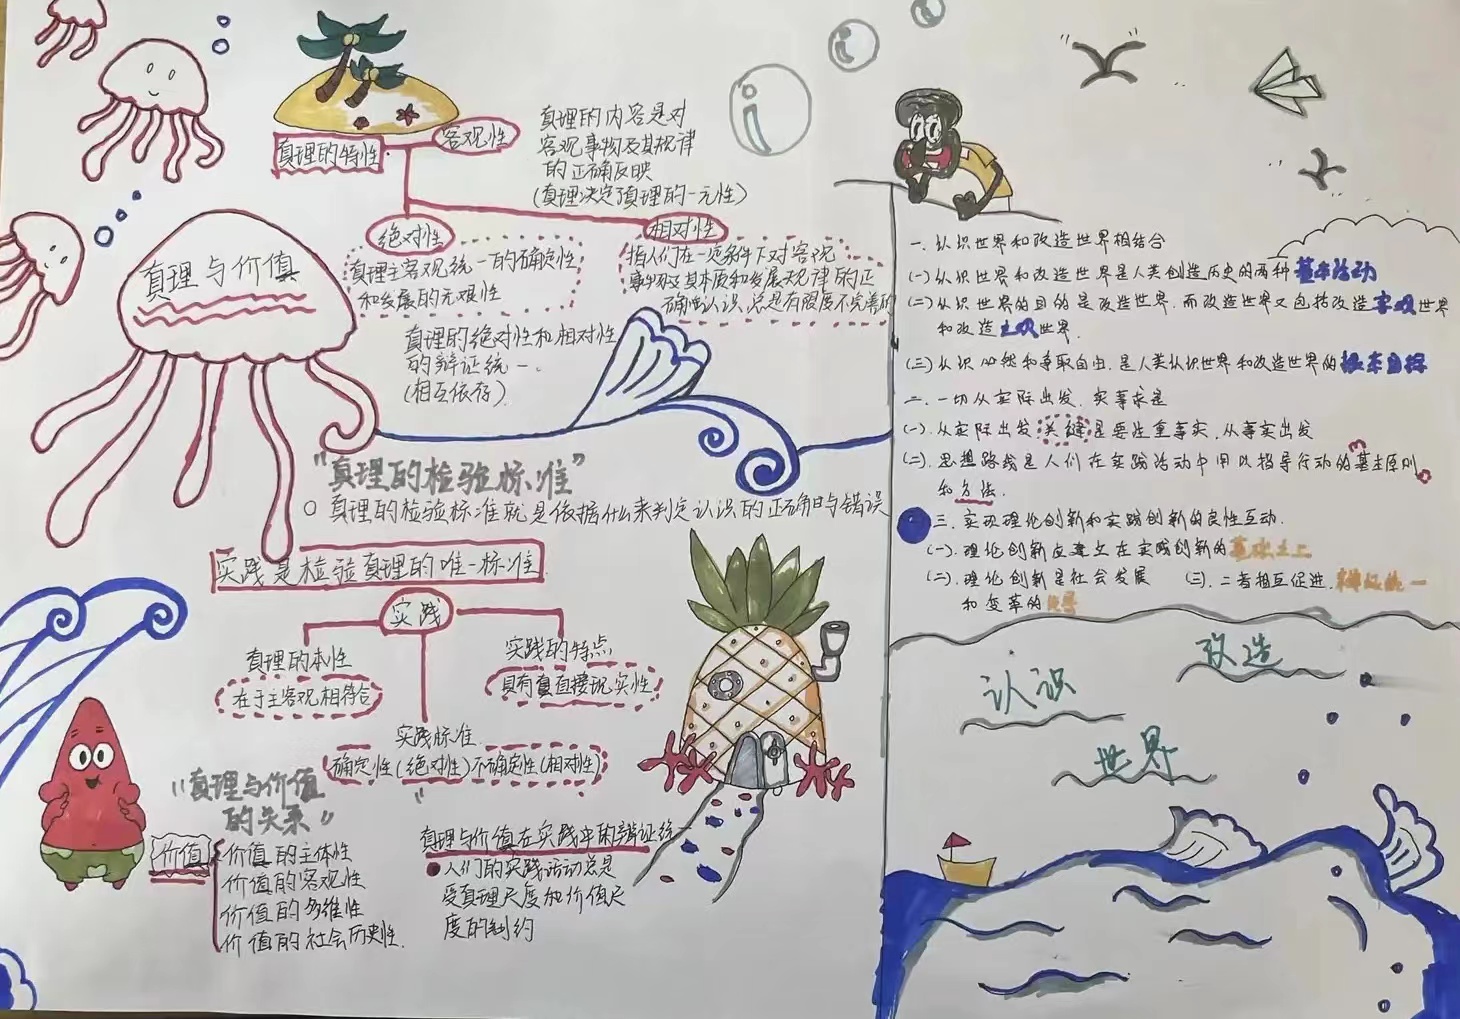 真理与价值
真理的特性
客观性
真理的内容是对
客观事物及其规律
的正确反映
(真理决定了真理的一元性)
绝对性
真理主客观统一的确定性
和发展的无限性
相对性
指人们在一定条件下对客观
事物及其本质和发展规律的正
确性认识总是有限度不完善的
真理的绝对性和相对性
的辩证统一.
(相互依存).
"真理的检验标准"
真理的检验标准就是依据什么来判定认识的正确与错误
实践是检验真理的唯一标准
实践
真理的本性
在于主客观相符合
实践的特点
具有直接现实性
实践标准.
确定性(绝对性)不确定性(相对性)
"真理与价值
的关系"
价值
价值的主体性
价值的客观性
价值的多维性
价值的社会历史性.
真理与价值在实践中的辩证统一
人们的实践活动总是
受真理尺度和价值尺
度的制约
一. 认识世界和改造世界相结合
(一)认识世界和改造世界是人类创造历史的两种基本活动
(二)认识世界的目的是改造世界.而改造世界又包括改造客观世界
和改造主观世界.
(三)认识必然和争取自由.是人类认识世界和改造世界的根本目标
二. 一切从实际出发.实事求是
(一).从实际出发关键是要注重事实.从事实出发
(二).思想路线是人们在实践活动中用以指导行动的基本原则
和方法.
三.实现理论创新和实践创新的良性互动.
(一).理论创新应建立在实践创新的基础之上
(二).理论创新是社会发展
和变革的先导
(三).二者相互促进.辩证统一
认识
改造
世界